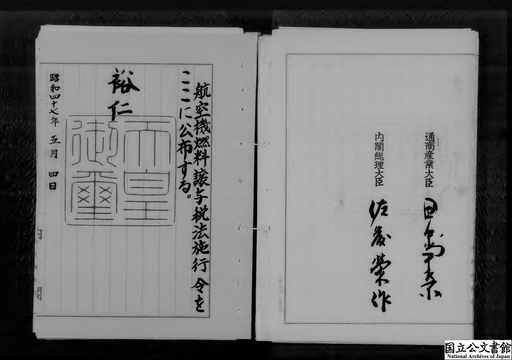 通商産業大臣 田中角栄
内閣総理大臣 佐藤榮作
航空機燃料譲与税法施行令を
ここに公布する。
裕仁
天皇
御璽
昭和四十七年 五月 四日
内閣
国立公文書館
National Archives of Japan